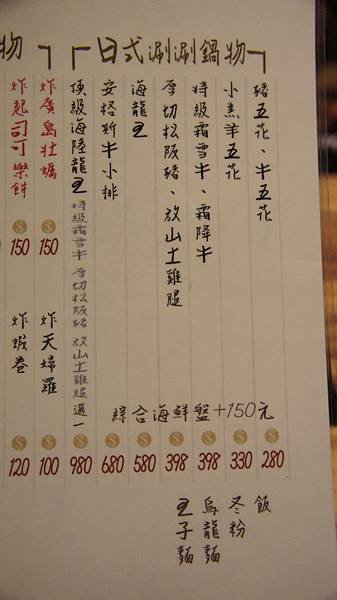 日式涮涮鍋物
豬五花、牛五花
280
小羔羊五花
330
特級霜雪牛、霜降牛
398
厚切松阪豬、放山土雞腿
398
海龍王
580
安格斯牛小排
680
頂級海陸龍王 特級霜雪牛 厚切松阪豬 放山土雞腿 選一
980
綜合海鮮盤+150元
飯
冬粉
烏龍麵
王子麵
物
炸廣島牡蠣
150
炸天婦羅
100
炸起司可樂餅
150
炸蝦卷
120